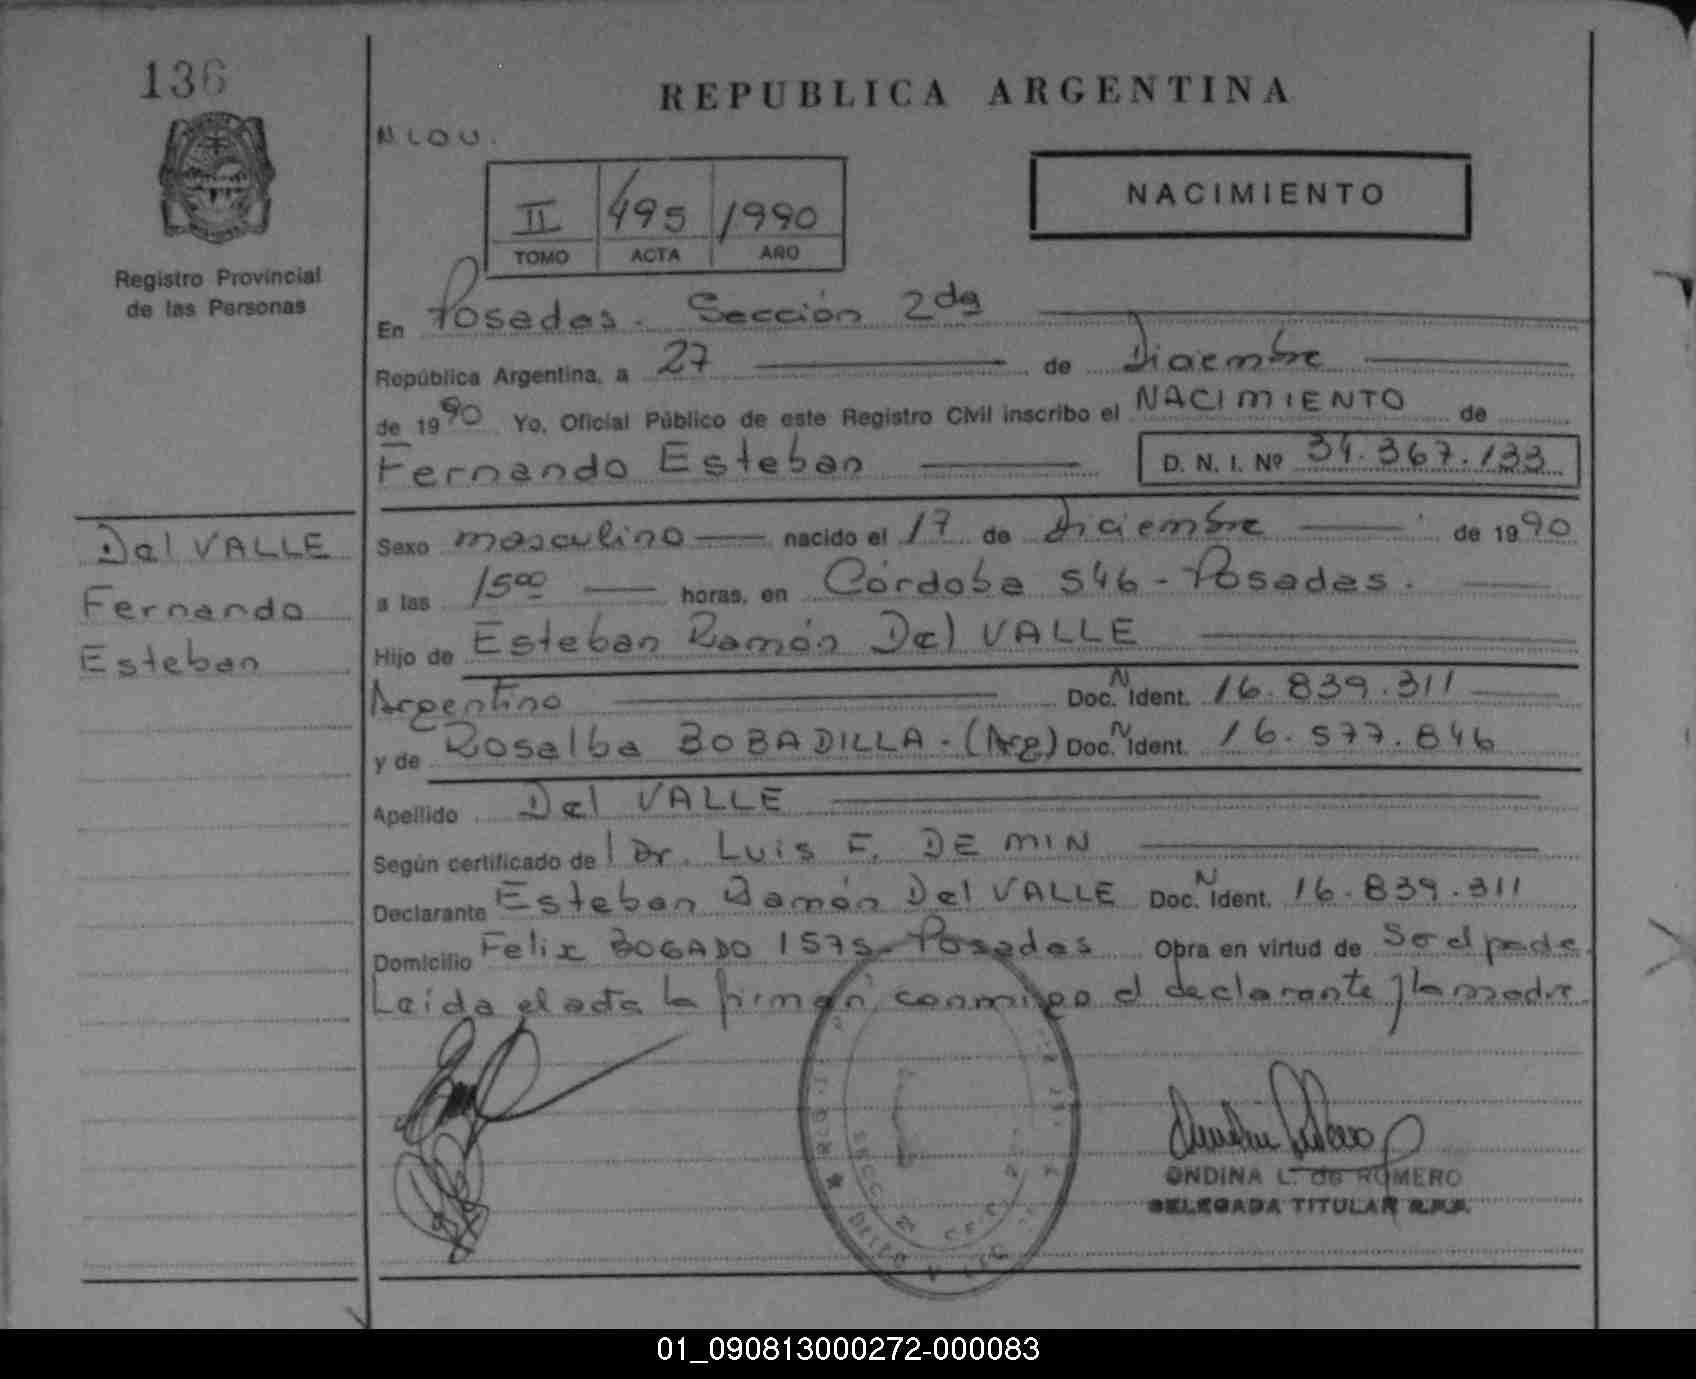 136
REPUBLICA ARGENTINA
NACIMIENTO
II 495 1990
TOMO ACTA AÑO
Registro Provincial
de las Personas
En Posadas. Sección 2da
República Argentina, a 27 de Diciembre
de 1990 Yo, Oficial Público de este Registro Civil inscribo el NACIMIENTO de
Fernando Esteban D. N. I. Nº 34.367.133
Del VALLE
Fernando
Esteban
Sexo masculino nacido el 17 de Diciembre de 1990
a las 15 00 horas, en Córdoba 546 - Posadas.
Hijo de Esteban Ramón Del VALLE
Argentino Doc. N Ident. 16.839.311
y de Rosalba BOBADILLA - (Arg) Doc. N Ident. 16.577.846
Apellido Del VALLE
Según certificado del Dr. Luis F. DE MIN
Declarante Esteban Ramón Del VALLE Doc. N Ident. 16.839.311
Domicilio Felix BOGADO 1575 - Posadas Obra en virtud de Ser el padre
Leida el acta la firman conmigo el declarante y la madre
ONDINA L. de ROMERO
DELEGADA TITULAR R.P.P.
01_090813000272-000083